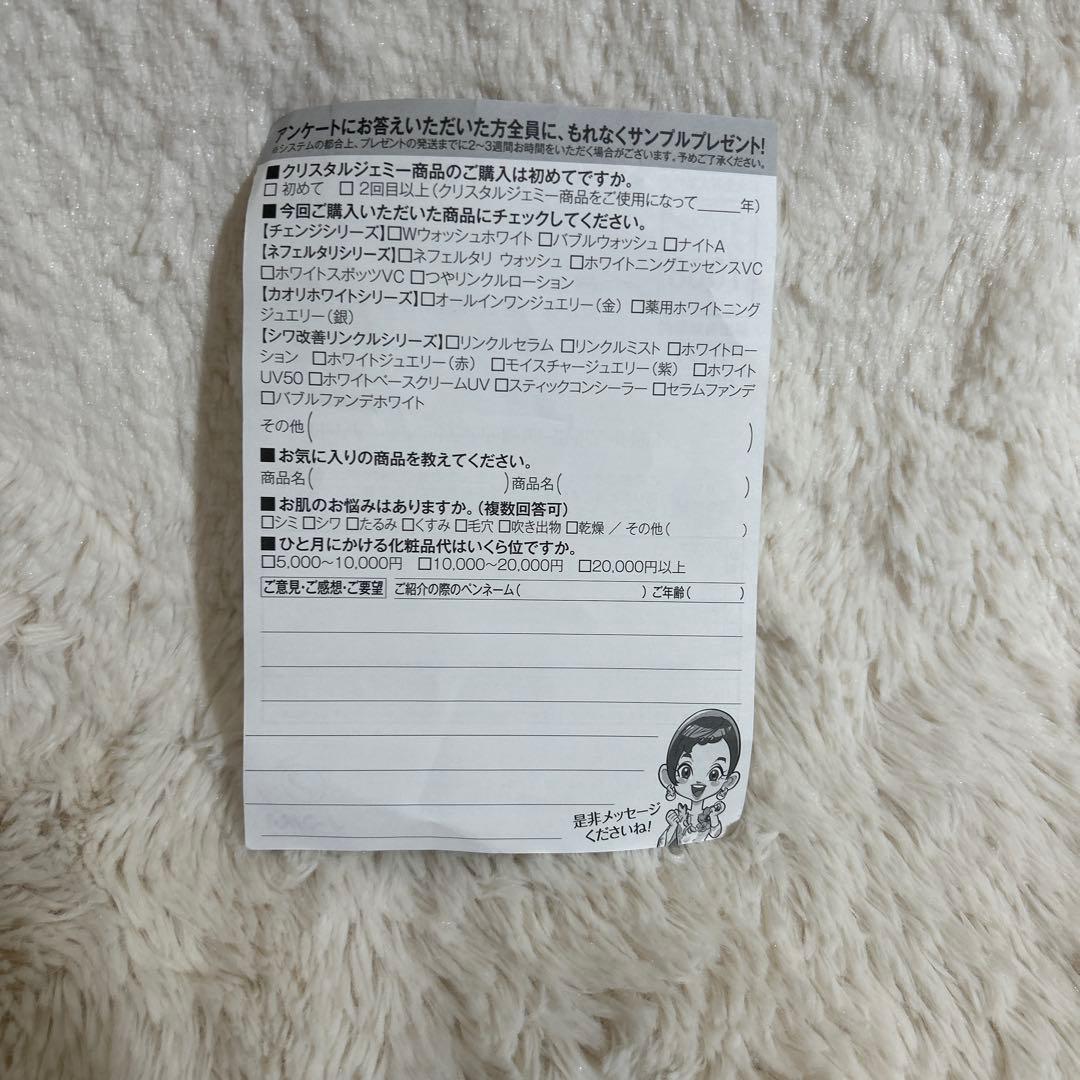 アンケートにお答えいただいた方全員に、もれなくサンプルプレゼント!
※システムの都合上、プレゼントの発送までに2〜3週間お時間をいただく場合がございます。予めご了承ください。
■クリスタルジェミー商品のご購入は初めてですか。
□ 初めて □ 2回目以上（クリスタルジェミー商品をご使用になって_____年）
■今回ご購入いただいた商品にチェックしてください。
【チェンジシリーズ】□Wウォッシュホワイト □バブルウォッシュ □ナイトA
【ネフェルタリシリーズ】□ネフェルタリ ウォッシュ □ホワイトニングエッセンスVC
□ホワイトスポッツVC □つやリンクルローション
【カオリホワイトシリーズ】□オールインワンジュエリー（金） □薬用ホワイトニング
ジュエリー（銀）
【シワ改善リンクルシリーズ】□リンクルセラム □リンクルミスト □ホワイトロー
ション □ホワイトジュエリー（赤） □モイスチャージュエリー（紫） □ホワイト
UV50 □ホワイトベースクリームUV □スティックコンシーラー □セラムファンデ
□バブルファンデホワイト
その他（ ）
■お気に入りの商品を教えてください。
商品名（ ）商品名（ ）
■お肌のお悩みはありますか。（複数回答可）
□シミ □シワ □たるみ □くすみ □毛穴 □吹き出物 □乾燥 ／ その他（ ）
■ひと月にかける化粧品代はいくら位ですか。
□5,000〜10,000円 □10,000〜20,000円 □20,000円以上
ご意見・ご感想・ご要望 ご紹介の際のペンネーム（ ）ご年齢（ ）
是非メッセージ
くださいね!